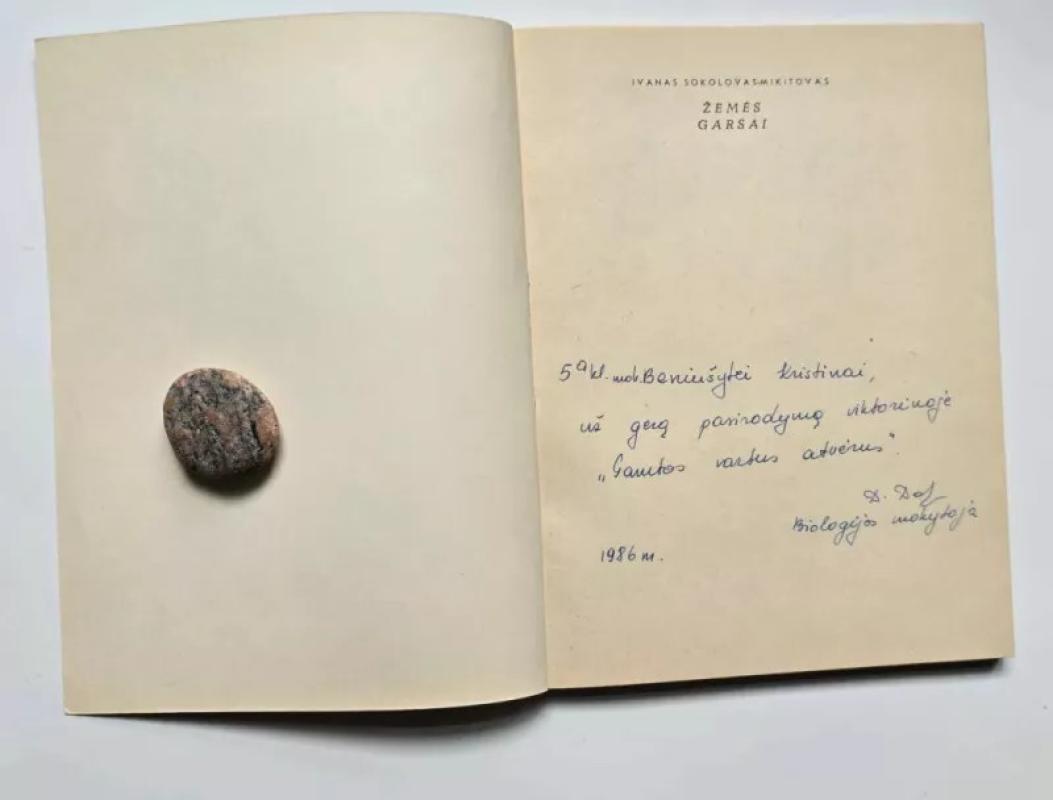 IVANAS SOKOLOVAS-MIKITOVAS
ŽEMĖS
GARSAI
5ᵃ kl. mok. Beniušytei Kristinai,
už gerą pasirodymą viktorinoje
„Gamtos vartus atvėrus".
D.
Biologijos mokytoja
1986 m.